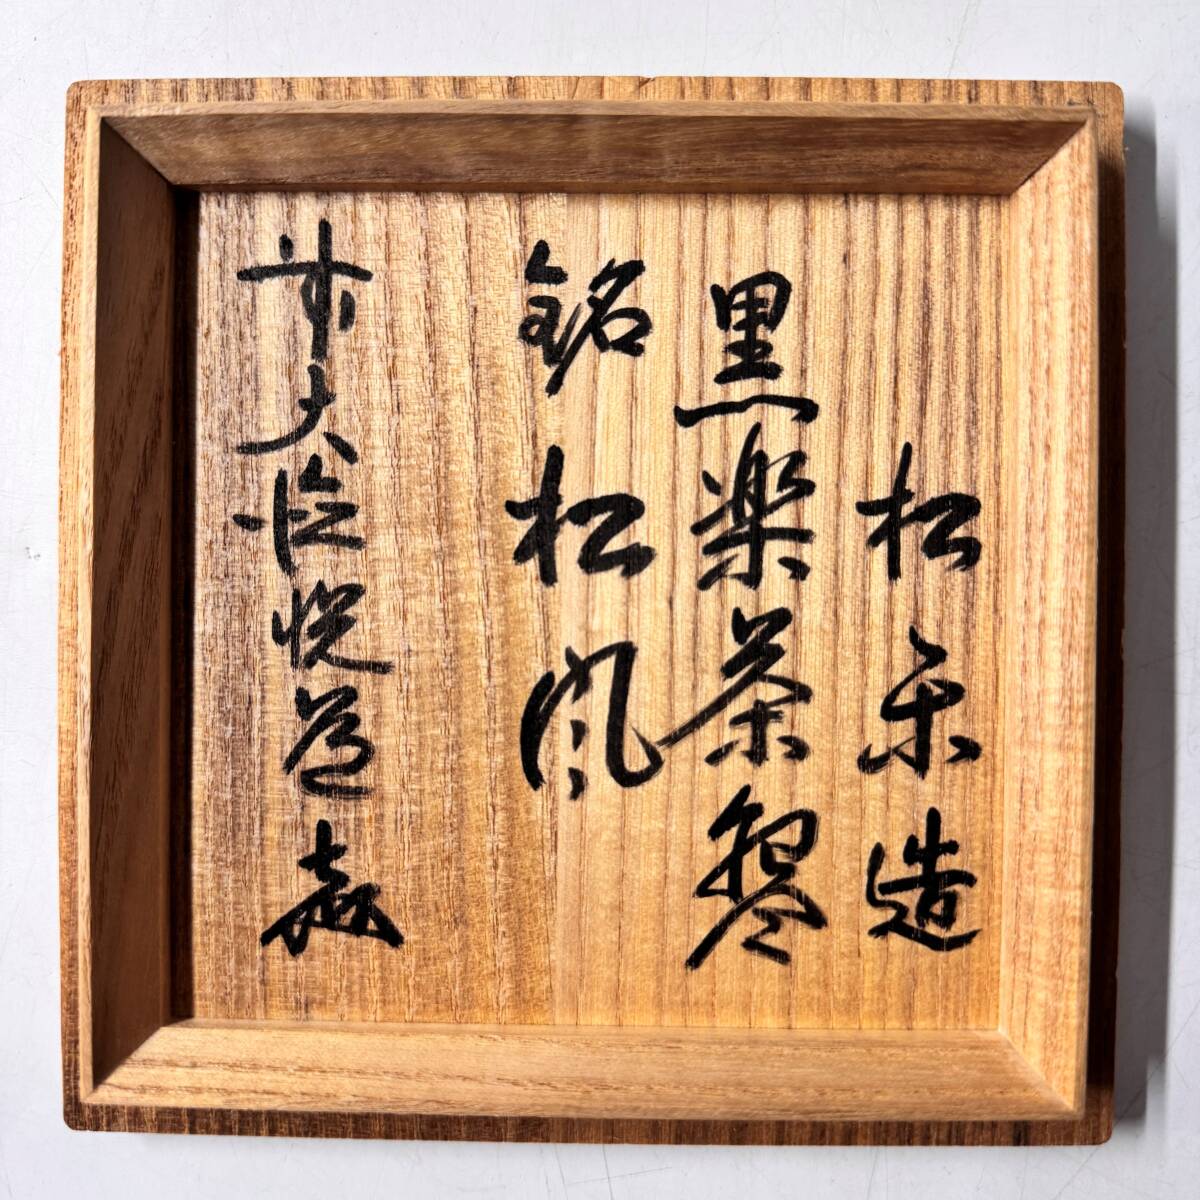 松楽造
黒楽茶盌
銘 松風
前大徳悦道